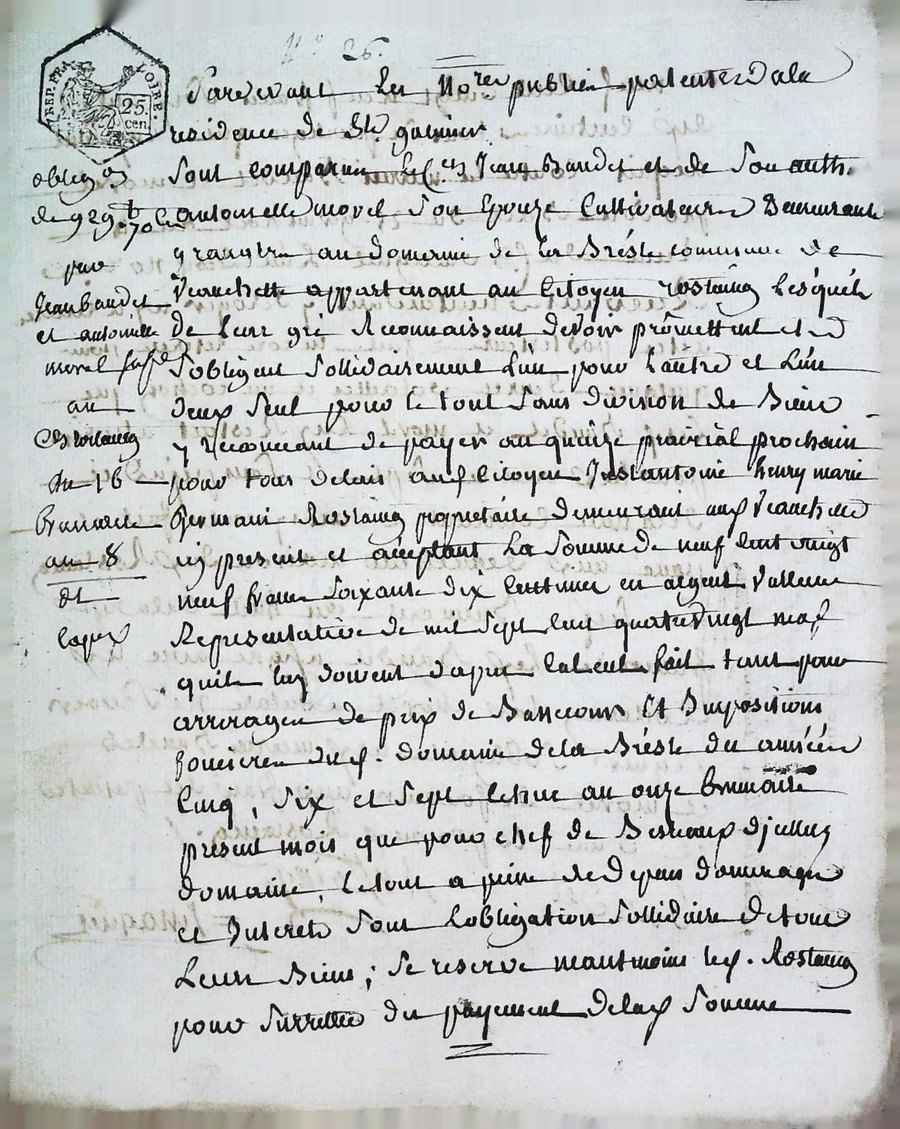 N° 26.
REP. FRA
25.
cen.
Pardevant Les No.res publics patentés a la
residence de St. galmier
Sont comparus Le Cen Jean Baudet et de Son auth.
antoinette morel Son Epouze Cultivateurs Demeurants
grangers au domaine de la Bréste commune de
Veauchette appartenant au Citoyen rostaing Lesquels
de Leur gré Reconnaissent devoir prômettent et
s'obligent Sollidairement L'un pour L'autre et L'un
deux Seul pour le tout Sans division de Biens
y renoncant de payer au quinze prairial prochain
pour tous delais au Citoyen Justantoine henry marie
Germain Rostaing proprietaire demeurant aud Veauchette
icy present et acceptant La Somme de neuf Cent vingt
neuf francs Soixante dix Centimes en argent Valleur
Représentative de mil Sept Cent quatrevingt neuf
quils luy doivent dapres Calcul fait tant pour
arrerages de prix de Et Impositions
foncieres dud. domaine de la Bréste des années
Cinq, Six et Sept Echue au onze brumaire
present mois que pour chef de Bestiaux dicelluy
domaine, Le tout a peine de depens domages
et Interets Sous L'obligation Sollidaire de tous
Leurs Biens; Se reserve neantmoins led. Rostaing
pour Surretté du payement de lad Somme
obligon
de 929 70 C
par
Jean baudet
et antoinette
morel
au
C Rostaing
du 16
Brumaire
an 8